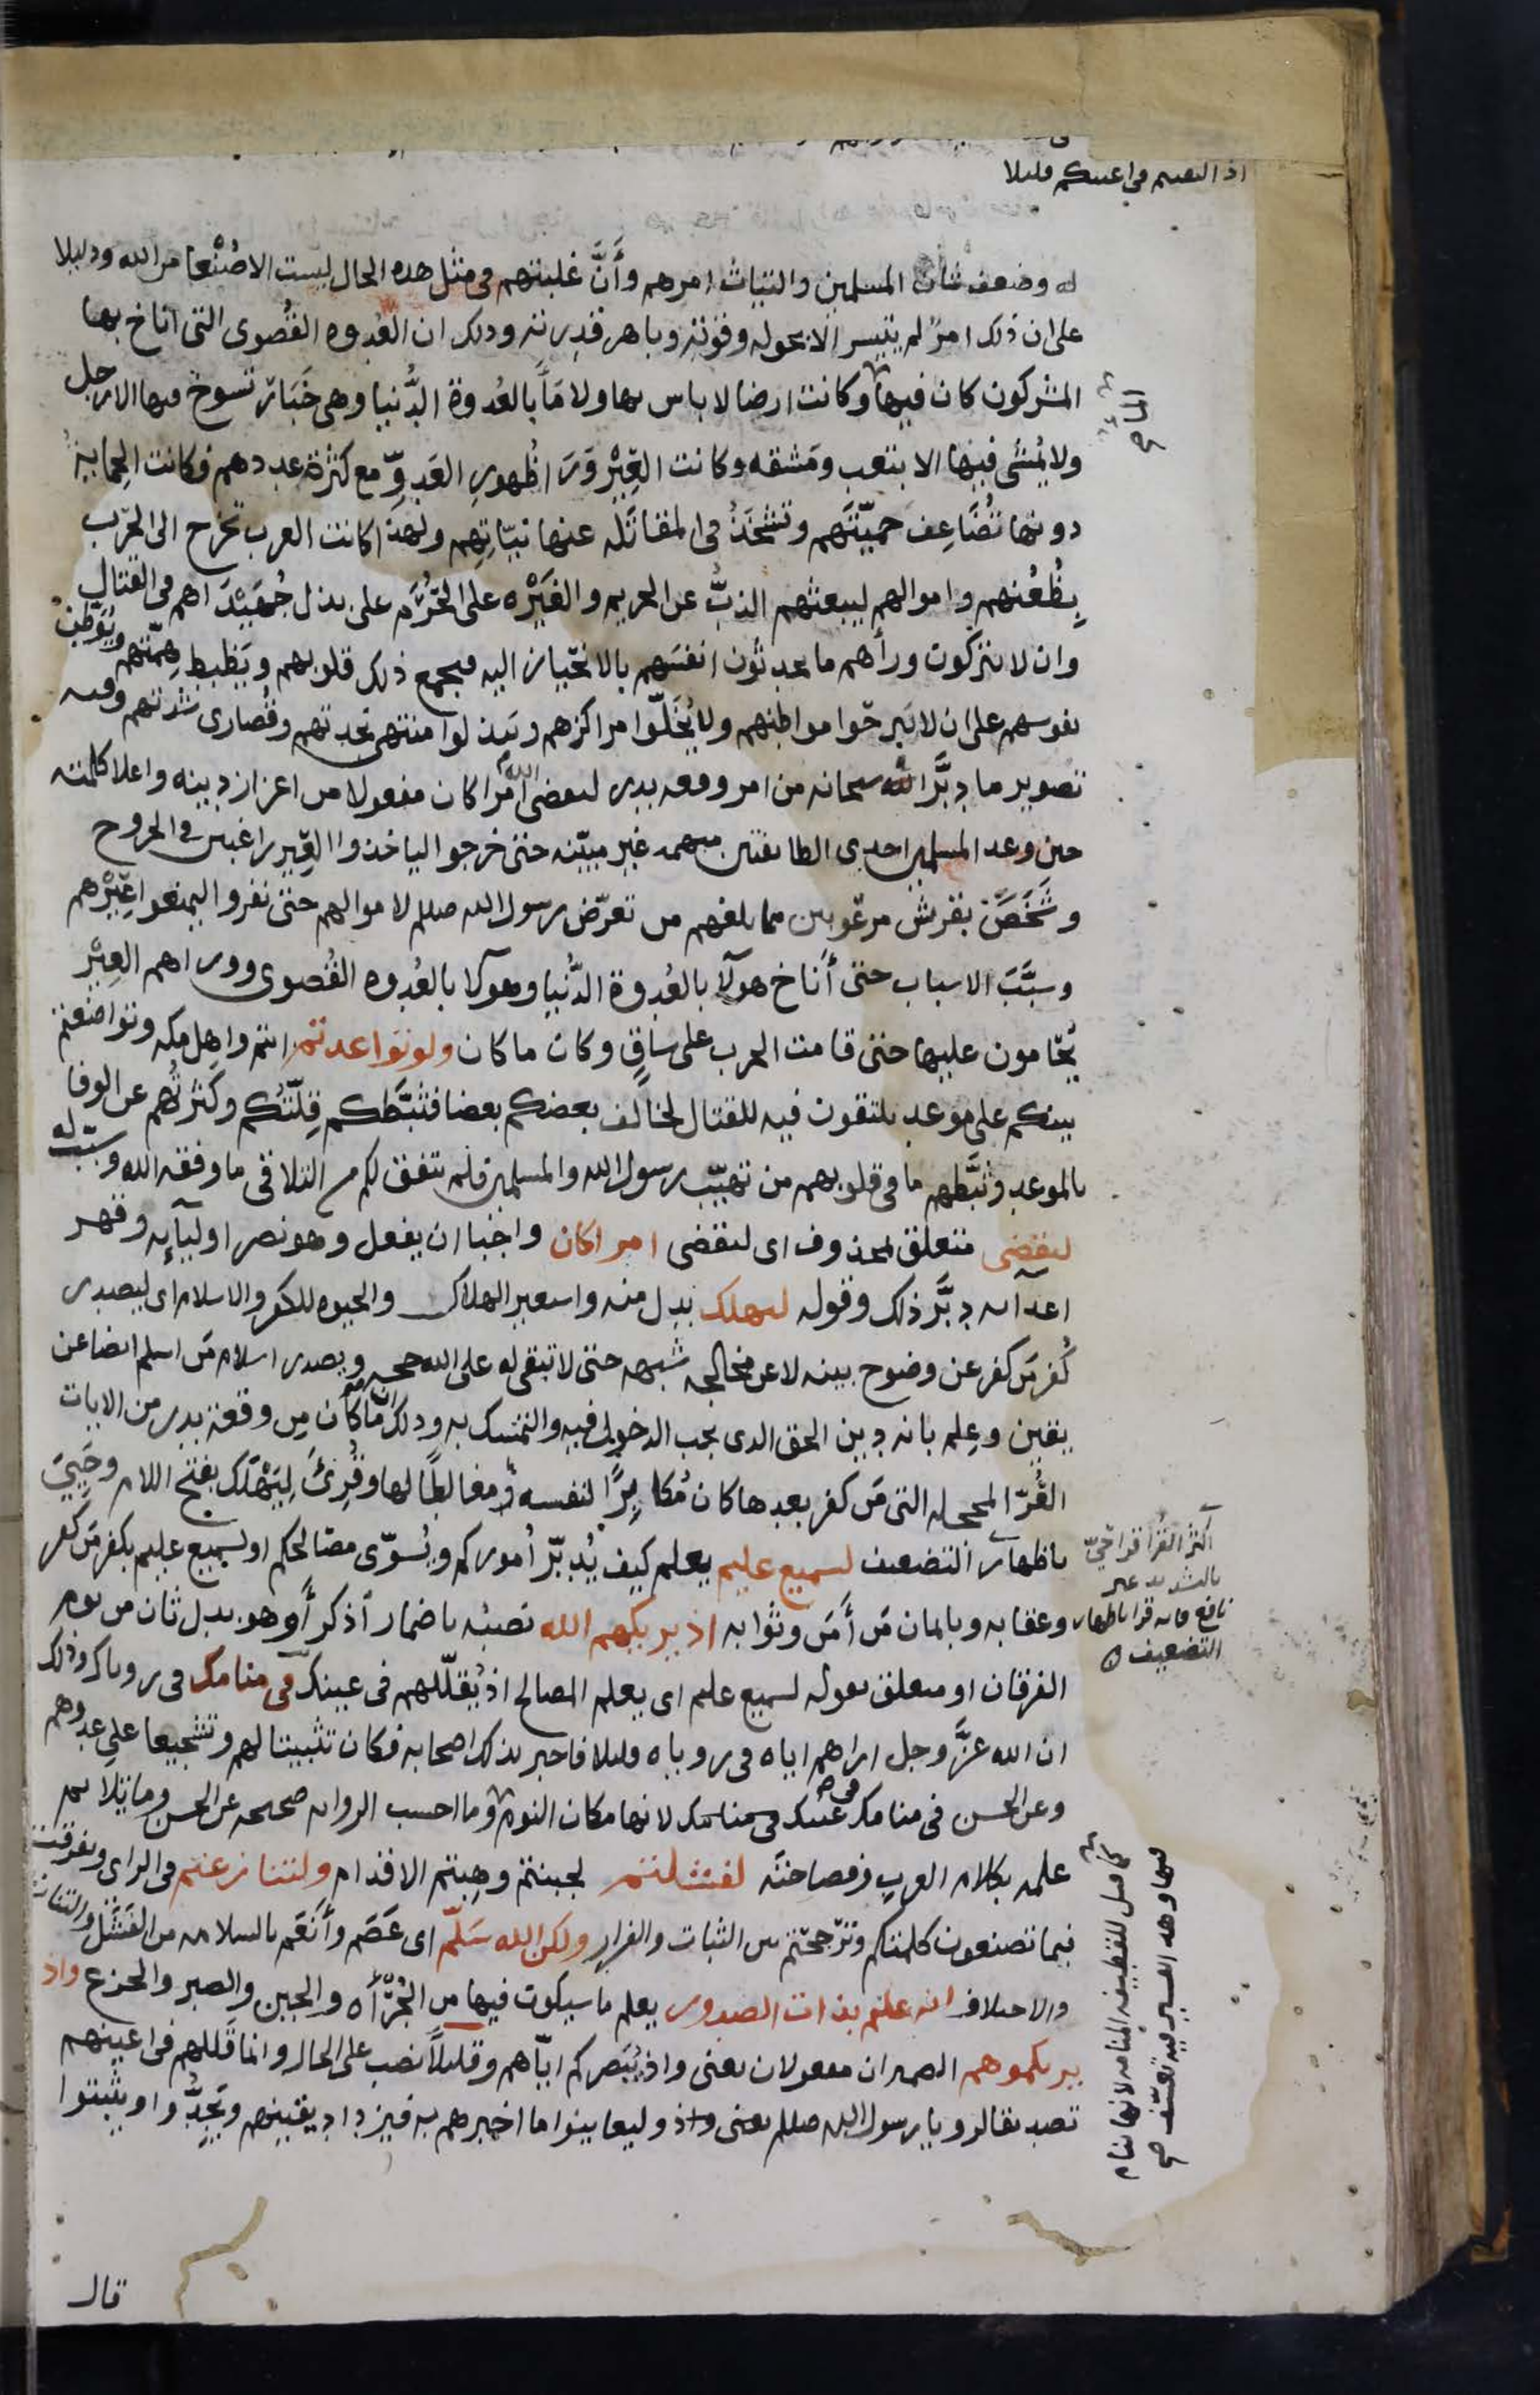 اذ التقيتم في اعينكم قليلا
له وضعف شان المسلمين والتياث امرهم وأَنَّ غلبتهم في مثل هذه الحال ليست الا صُنْعا من الله ودليلا
على ان ذلك امرٌ لم يتيسر الا بحوله وقوّته وباهر قدرته وذلك ان العُدوه القُصوى التي اناخ بها
المشركون كان فيها الماء وكانت ارضا لا باس بها ولا مَآ بالعُدوة الدُّنيا وهي خَبَارٌ تسوخ فيها الارجل
ولا يُمشَى فيها الا بتعب ومَشقه وكانت العِيْر وَرَا ظُهورِ العَدوِّ مع كثرة عددهم فكانت الحِمايةُ
دونها تُضَاعِف حميّتَهم وتشحَذُ في المقاتَله عنها نيّاتِهم ولهذا كانت العرب تخرج الى الحَرْب
بِظُعُنهم واموالهم ليبعثهم الذبُّ عن الحريم والغَيْرَه على الحُرَم على بذل جُهَيْدَاهم في القتال
وان لا يتركوا ورأهم ما يحدثون انفسَهم بالانحياز اليه فيجمع ذلك قلوبهم ويَضبط هِمَّتهم ويُوطّنُ
نفوسهم على ان لا يَبرحوا مواطنهم ولا يُخَلّوا مراكزهم ويَبذلوا منتهى نجدتهم وقُصارى شدتهم وفيه
تصوير ما دبَّر الله سبحانه من امر وقعه بدر ليقضي الله امرًا كان مفعولا من اعزاز دينه واعلا كلمته
حين وعد المسلمين احدى الطايفتين مبهمه غير مبيّنه حتى خرجوا لياخذوا العِير راغبين في الخروج
وشَخَصَ بقريش مرعوبين مما بلغهم من تعرّض رسول الله صللم لاموالهم حتى نفروا ليمنعوا عِيْرهم
وسبَّبَ الاسباب حتى أَناخ هولآ بالعُدوة الدُّنيا وهولآ بالعُدوه القُصوى ووراهم العِيْر
يُحَامون عليها حتى قامت الحرب على سَاقٍ وكان ما كان ولو تواعدتم انتم واهل مكه وتواضعتم
بينكم على موعد يلتقون فيه للقتال لخالف بعضكم بعضا فثبّطكم قِلّتُكم وكثرتُهم عن الوفا
بالموعد وثبَّطهم ما في قلوبهم من تهيّب رسول الله والمسلمين فلم يتفق لكم من التلاقي ما وفقه الله وسبّب له
ليقضي متعلق بمحذوف اى ليقضي امرا كان واجبا ان يفعل وهو نصر اوليآيه وقهر
اعدآيه دبَّر ذلك وقوله ليهلك بدل منه واستعير الهلاك والحيوه للكفر والاسلام اى ليصدر
كُفر مَن كفر عن وضوح بينه لا عن مخالجه شبهه حتى لا تبقى له على الله حجه ويصدر اسلام مَن اسلم ايضا عن
يقين وعِلم بانه دين الحق الذى يجب الدخول فيه والتمسك به وذلك ان ما كان من وقعة بدر من الايات
الغُرّ المحجله التي مَن كفر بعدها كان مُكابِرًا لنفسه مُغالِطًا لها وقُرِئَ لِيَهْلَك بفتح اللام وحَيِيَ
باظهار التضعيف لسميع عليم يعلم كيف يُدبّر اُموركم ويُسوّى مصالحكم او لسميع عليم بكفر مَن كفر
وعقابه وبايمان مَن أمَن وثوابه اذ يريكهم الله نصبُه باضمار اذكر أو هو بدل ثان من يوم
الفرقان او متعلق بقوله لسميع عليم اى يعلم المصالح اذ يُقلّلهم في عينك في منامك في روياك وذلك
ان الله عزَّ وجل اراهم اياه في روياه قليلا فاخبر بذلك اصحابه فكان تثبيتا لهم وتشجيعا على عدوهم
وعن الحسن في منامك في عينك لانها مكان النوم وما احسب الروايه صحيحه عن الحسن وما يلايم
علمه بكلام العرب وفصاحتَه لفشلتم لجبنتم وهِبتم الاقدام ولتنازعتم في الراى وتفرقت
فيما تصنعون كلمتكم وترجحتم بين الثبات والفرار ولكن الله سَلّم اى عَصَم وأَنعَم بالسلامه من الفَشَل والتنازع
والاختلاف انه عليم بذات الصدور يعلم ما سيكون فيها من الجُرأه والجبن والصبر والجزع واذ
يريكموهم الضميران مفعولان يعنى واذ يُبَصركم ايّاهم وقليلاً نصب على الحال وانما قَللهم في اعينهم
تصديقا لرويا رسول الله صللم وليعاينوا ما اخبرهم به فيزداد يقينهم ويَجِدُّوا ويثبتوا
قال
الماء صح
اكثر القرا قرا حَيّ
بالتشديد غير
نافع فانه قرا باظهار
التضعيف
كما قيل للقطيفه المنامه لانها ينام
فيها وهذا تفسير فيه تعسّف صح